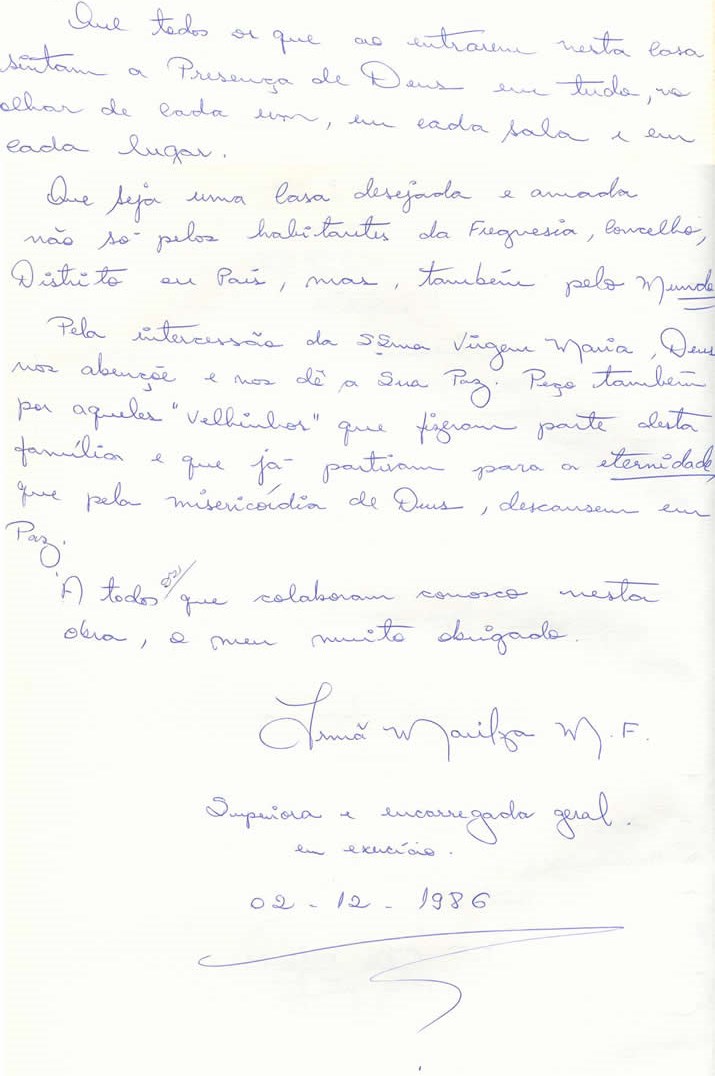 Que todos os que ao entrarem nesta Casa
sintam a Presença de Deus em tudo, no
olhar de cada um, em cada sala e em
cada lugar.
Que seja uma Casa desejada e amada
não só pelos habitantes da Freguesia, Concelho,
Distrito ou País, mas, também pelo Mundo
Pela intercessão da SSma Virgem Maria, Deus
nos abençõe e nos dê a Sua Paz. Peço também
por aqueles "Velhinhos" que fizeram parte desta
família e que já partiram para a eternidade,
que pela misericóidia de Deus, descansem em
Paz.
A todos os que colaboram conosco nesta
obra, o meu muito obrigado.
Irmã Marilza M. F.
Superiora e encarregada geral.
em exercício.
02 - 12 - 1986